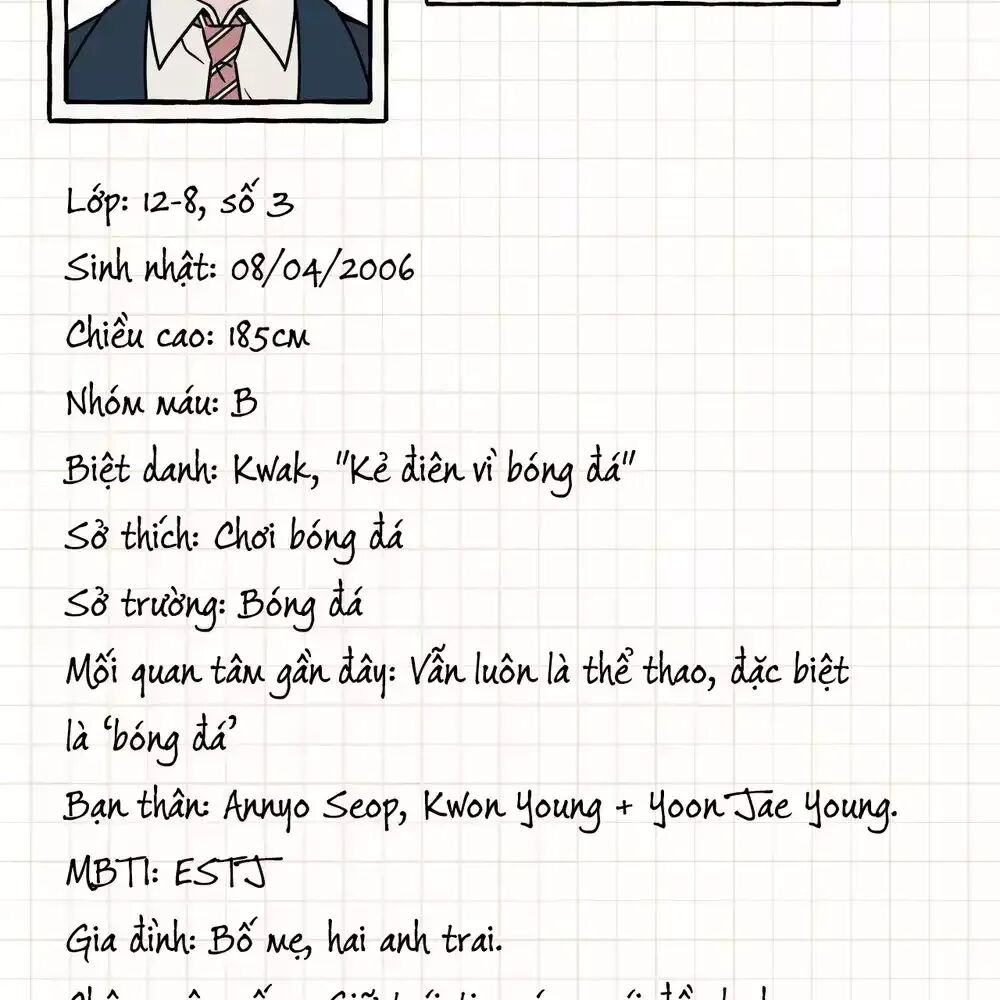 Lớp: 12-8, số 3
Sinh nhật: 08/04/2006
Chiều cao: 185cm
Nhóm máu: B
Biệt danh: Kwak, "Kẻ điên vì bóng đá"
Sở thích: Chơi bóng đá
Sở trường: Bóng đá
Mối quan tâm gần đây: Vẫn luôn là thể thao, đặc biệt
là ‘bóng đá’
Bạn thân: Annyo Seop, Kwon Young + Yoon Jae Young.
MBTI: ESTJ
Gia đình: Bố mẹ, hai anh trai.